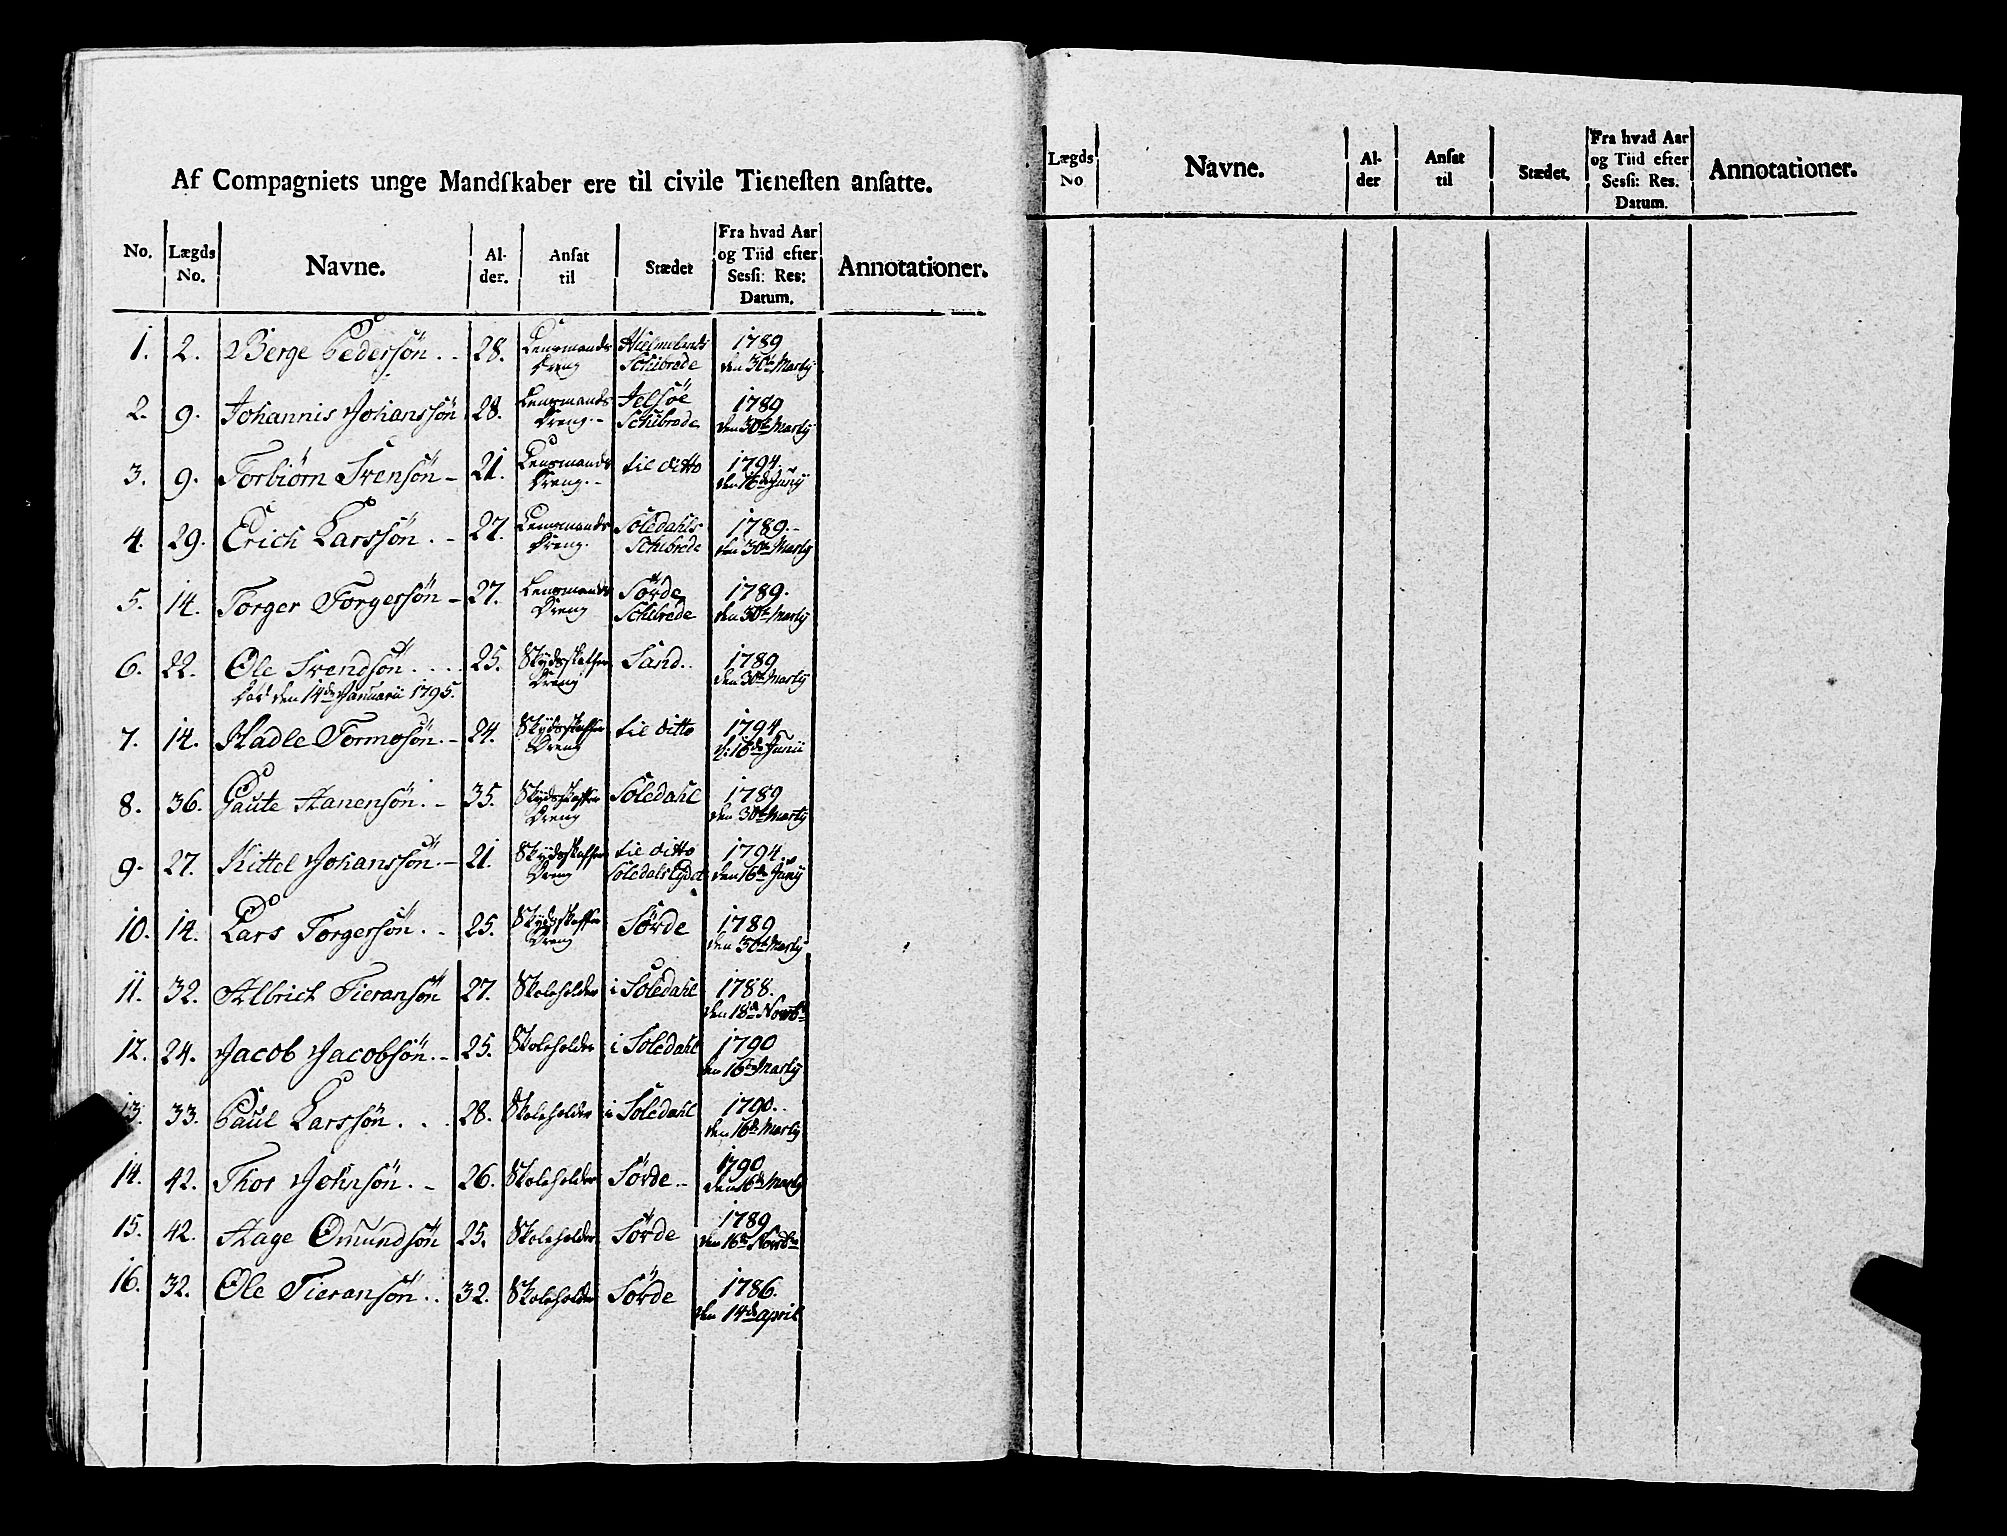 Af Compagniets unge Mandſkaber ere til civile Tieneſten anſatte.
No. Lægds No. Navne. Al-der. Anſat til Stædet Fra hvad Aar og Tiid efter Sesſi: Res: Datum. Annotationer.
1. 2. Berge Pedersön . . 28. Lensmands Dreng Hielmelands Schibrede 1789 den 30te Marty
2. 9. Johannis Johanssön 28. Lensmands Dreng. - Jelsöe Schibrede 1789 den 30te Marty
3. 9. Torbiørn Svensön - 21. Lensmands Dreng. - til ditto 1794. den 16de Juny
4. 29. Erich Larssön . - 27. Lensmands Dreng. Soledahls Schibrede 1789. - den 30te Marty
5. 14. Torger Torgersön - 27. Lensmands Dreng Sörde Schibrede 1789. den 30te Marty
6. 22. Ole Svendsön . . . . 25. Skydsskaffer Dreng Sand. . 1789 den 30te Marty
Död den 14de Januarii 1795.
7. 14. Hadle Tormosön. - 24. Skydsskaffer Dreng til ditto 1794 d: 16de Junii
8. 36. Gaute Hanensön. - 35. Skydsskaffer Dreng Soledahl 1789 den 30te Marty
9. 27. Kittel Johanssön. - 21. Skydsskaffer Dreng til ditto Soledals Eydet 1794. den 16de Juny
10. 14. Lars Torgersön . - 25. Skydsskaffer Dreng Sörde 1789 den 30te Marty
11. 32. Albrich Tieransön 27. Skoleholder i Soledahl 1788. den 18de Novbr
12. 24. Jacob Jacobsön. - 25. Skoleholder i Soledahl 1790 den 16de Marty
13. 33. Paul Larssön . . . 28. Skoleholder i Soledahl 1790. . den 16de Marty
14. 42. Thor Johnsön . - 26. Skoleholder Sörde - 1790 den 16de Marty
15. 42. Aage Omundsön 25. Skoleholder Sörde 1789 den 16de Novbr
16. 32. Ole Tieransön . . 32. Skoleholder Sörde 1786. den 14de april
Lægds No Navne. Al-der Anſat til Stædet. Fra hvad Aar og Tiid efter Sesſi: Res. Datum. Annotationer.